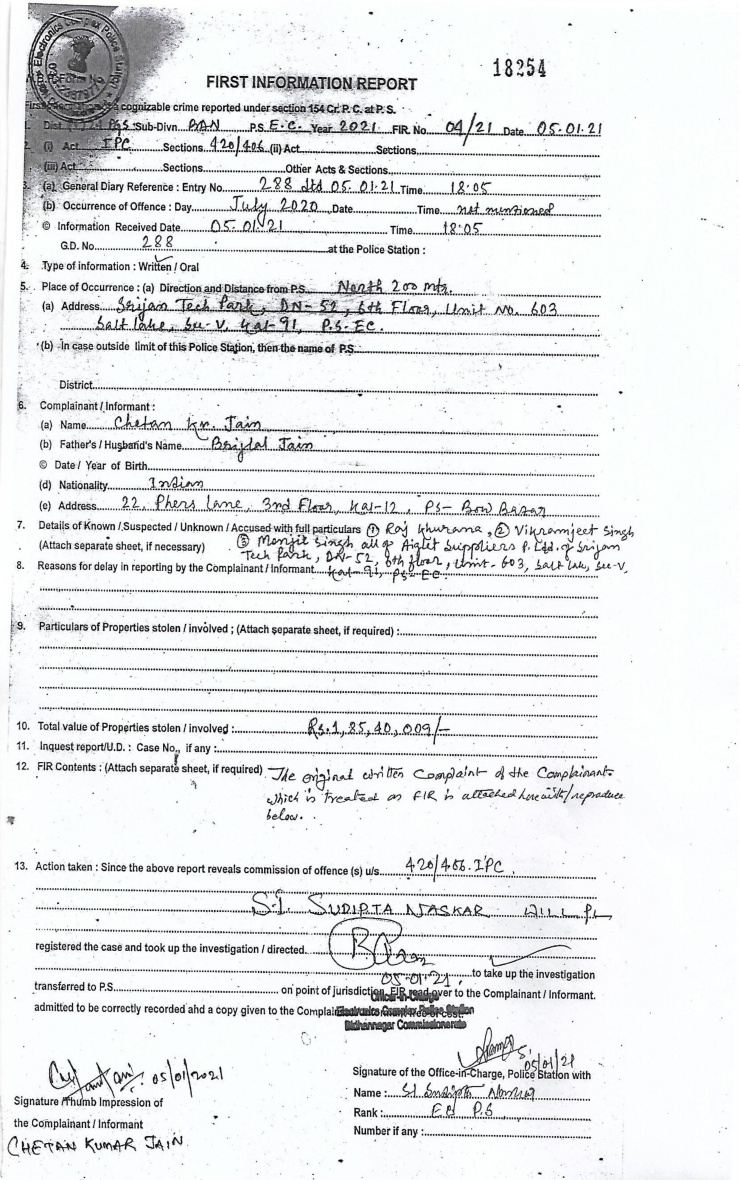 18254
FIRST INFORMATION REPORT
cognizable crime reported under section 154 Cr. P. C. at P. S.
1. Dist. PGS Sub-Divn. P.S. E.C. Year 2021 FIR. No. 04/21 Date 05.01.21
2. (i) Act IPC Sections 420/406 (ii) Act Sections
(iii) Act Sections Other Acts & Sections
3. (a) General Diary Reference : Entry No. 288 dtd 05.01.21 Time 18:05
(b) Occurrence of Offence : Day July 2020 Date Time not mentioned
© Information Received Date 05.01.21 Time 18:05
G.D. No. 288 at the Police Station :
4. Type of information : Written / Oral
5. Place of Occurrence : (a) Direction and Distance from P.S. North 200 mtr.
(a) Address Srijan Tech Park, DN-52, 6th Floor, Unit No. 603
Salt Lake, Sec-V, Kal-91, P.S-EC.
(b) In case outside limit of this Police Station, then the name of P.S.
District
6. Complainant / Informant :
(a) Name Chetan Kr. Jain
(b) Father's / Husband's Name Brijlal Jain
© Date / Year of Birth
(d) Nationality Indian
(e) Address 22, Phers Lane, 3rd Floor, Kal-12, PS- Bow Bazar
7. Details of Known / Suspected / Unknown / Accused with full particulars ① Raj Khurana, ② Vikramjeet Singh
(Attach separate sheet, if necessary) ③ Manjit Singh all of Aiglet Suppliers P. Ltd. of Srijan
Tech Park, DN-52, 6th floor, Unit-603, Salt Lake, Sec-V,
8. Reasons for delay in reporting by the Complainant / Informant Kal-91, PS-EC
9. Particulars of Properties stolen / involved ; (Attach separate sheet, if required) :
10. Total value of Properties stolen / involved : Rs. 1,85,40,009/-
11. Inquest report/U.D. : Case No., if any :
12. FIR Contents : (Attach separate sheet, if required) The original written Complaint of the Complainant
which is treated as FIR is attached herewith/reproduce
below.
13. Action taken : Since the above report reveals commission of offence (s) u/s. 420/406 IPC.
S.I. SUDIPTA NASKAR WILL PL
registered the case and took up the investigation / directed
05.01.21 to take up the investigation
transferred to P.S. on point of jurisdiction FIR read over to the Complainant / Informant.
admitted to be correctly recorded and a copy given to the Complainant
Officer-in-Charge
Electronics Complex Police Station
Bidhannagar Commissionerate
05/01/2021
05/01/21
Signature / Thumb Impression of
the Complainant / Informant
CHETAN KUMAR JAIN
Signature of the Office-in-Charge, Police Station with
Name : SI Sudipta Naskar
Rank : P.S
Number if any :